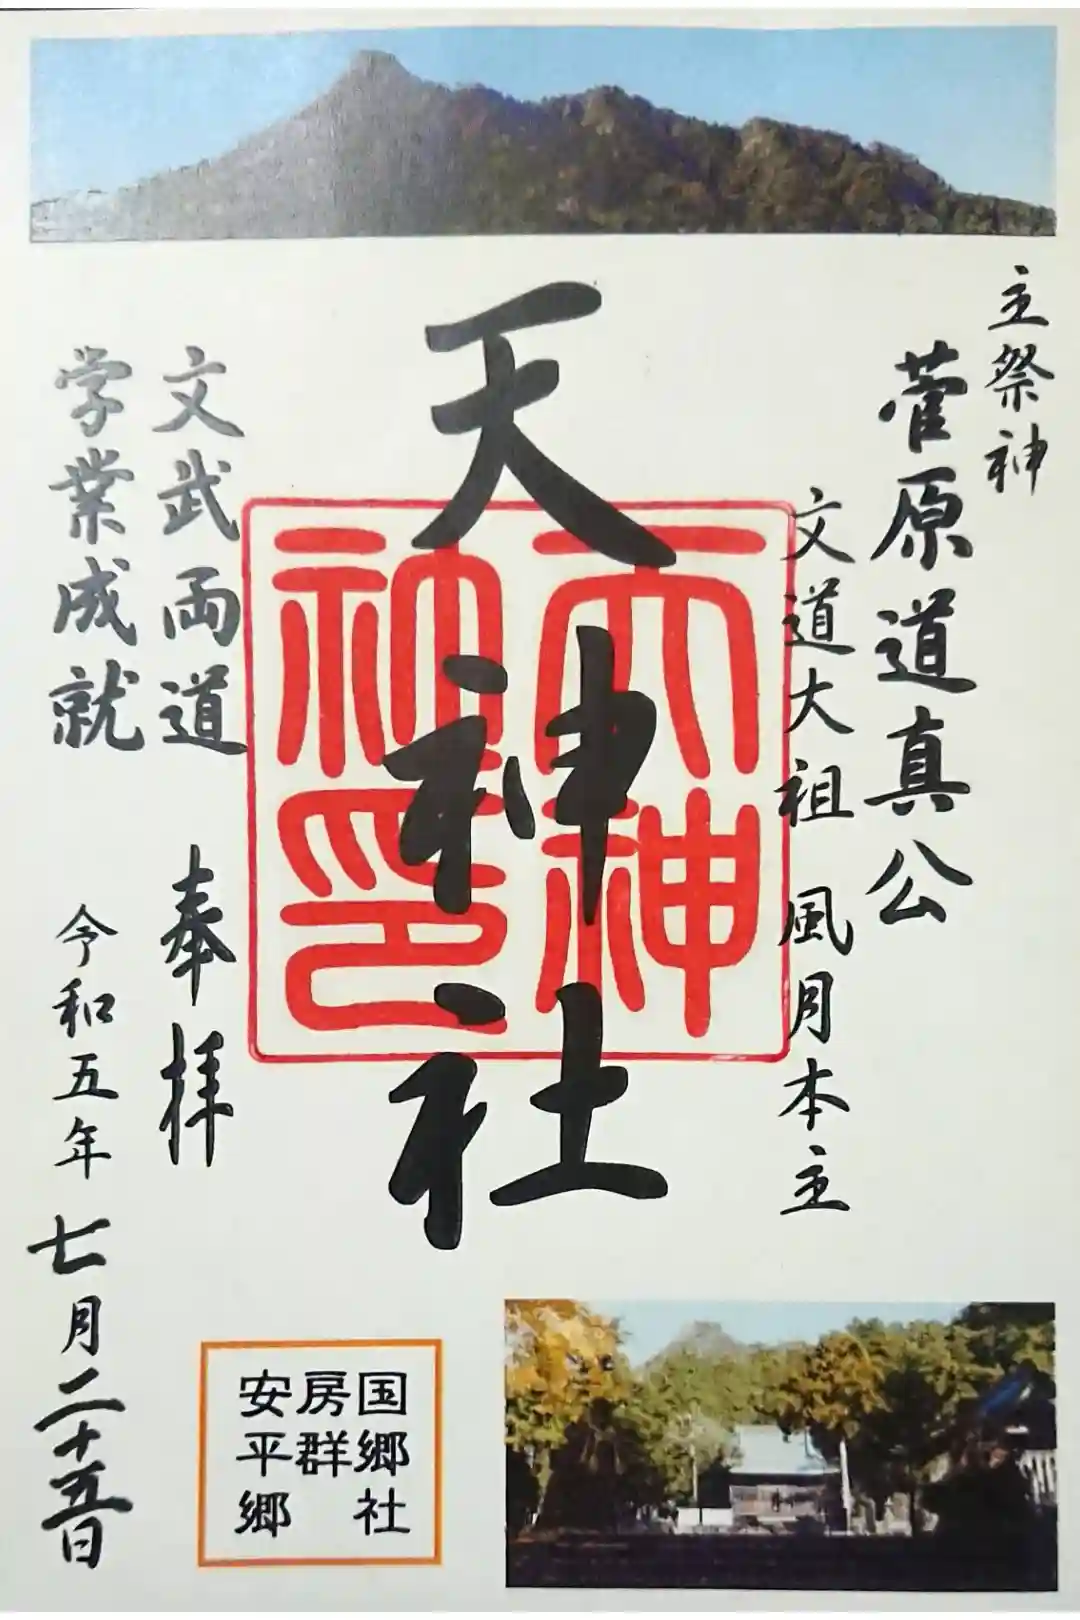 主祭神
菅原道真公
文道大祖 風月本主
天神社
文武両道
学業成就
奉拝
令和五年 七月二十五日
国郷社
房群
安平郷